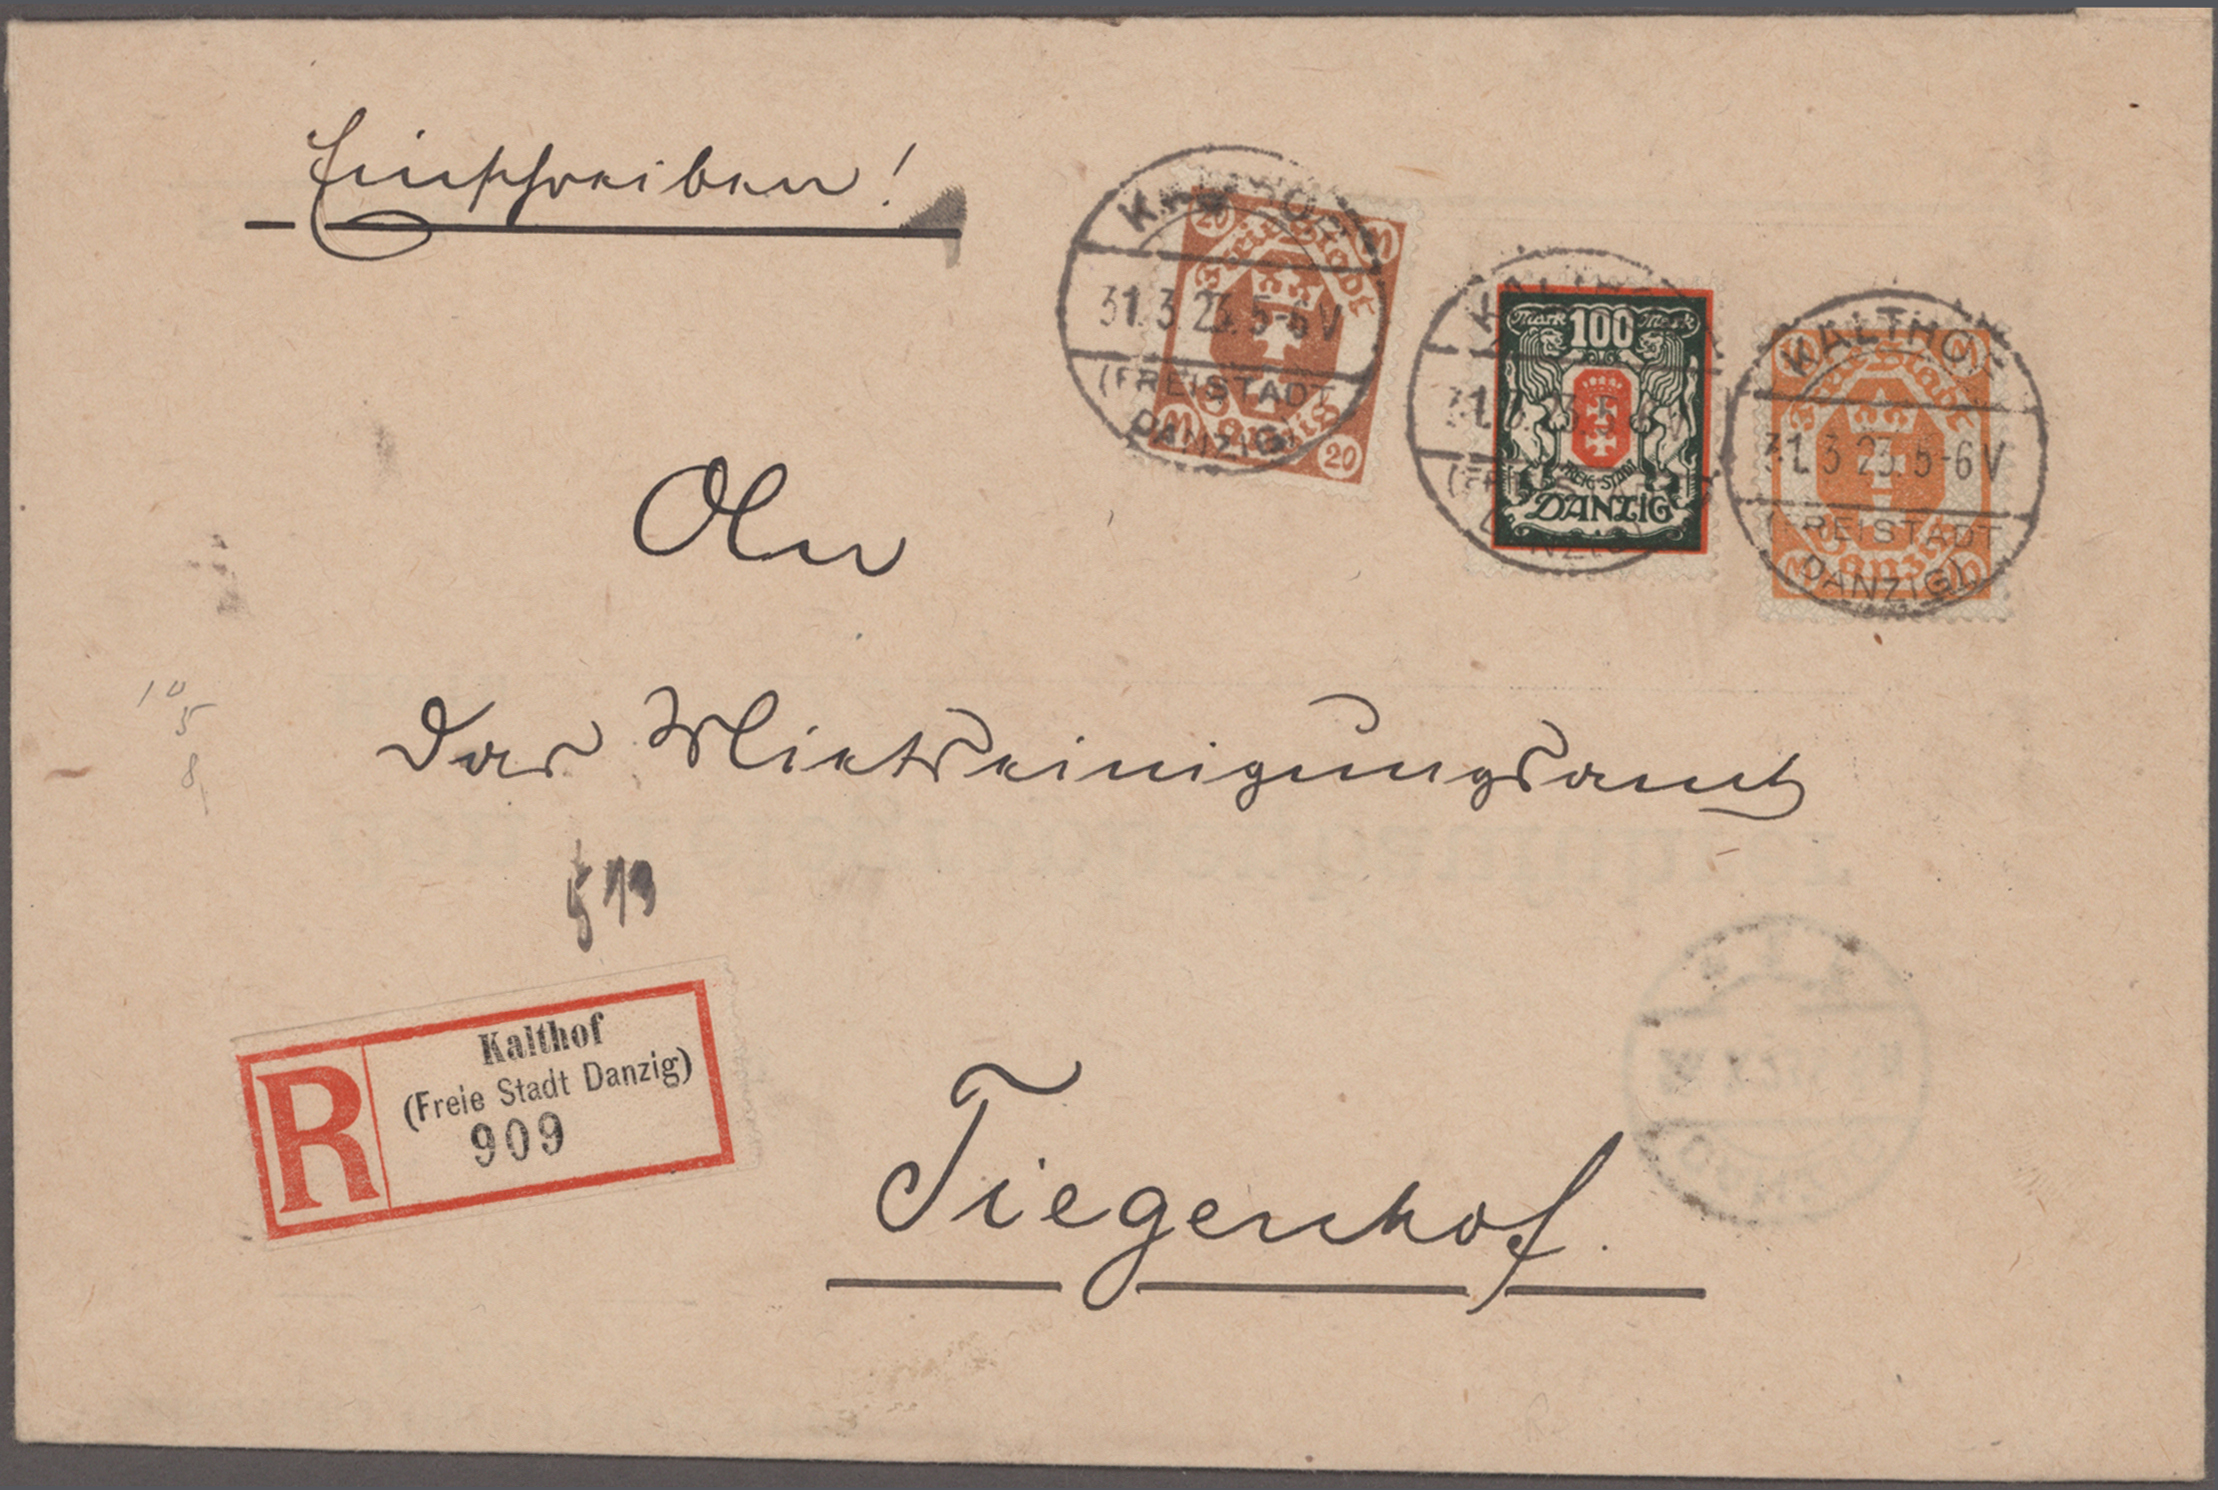 Einschreiben!
KALTHOF
31.3.23.5-6V
(FREISTADT
DANZIG)
20 M
Freie Stadt
Danzig
M 20
Mark 100 Mark
FREIE STADT
DANZIG
KALTHOF
31.3.23.5-6V
(FREISTADT
DANZIG)
An
das Mietseinigungsamt
Kalthof
(Freie Stadt Danzig)
R
909
Tiegenhof.